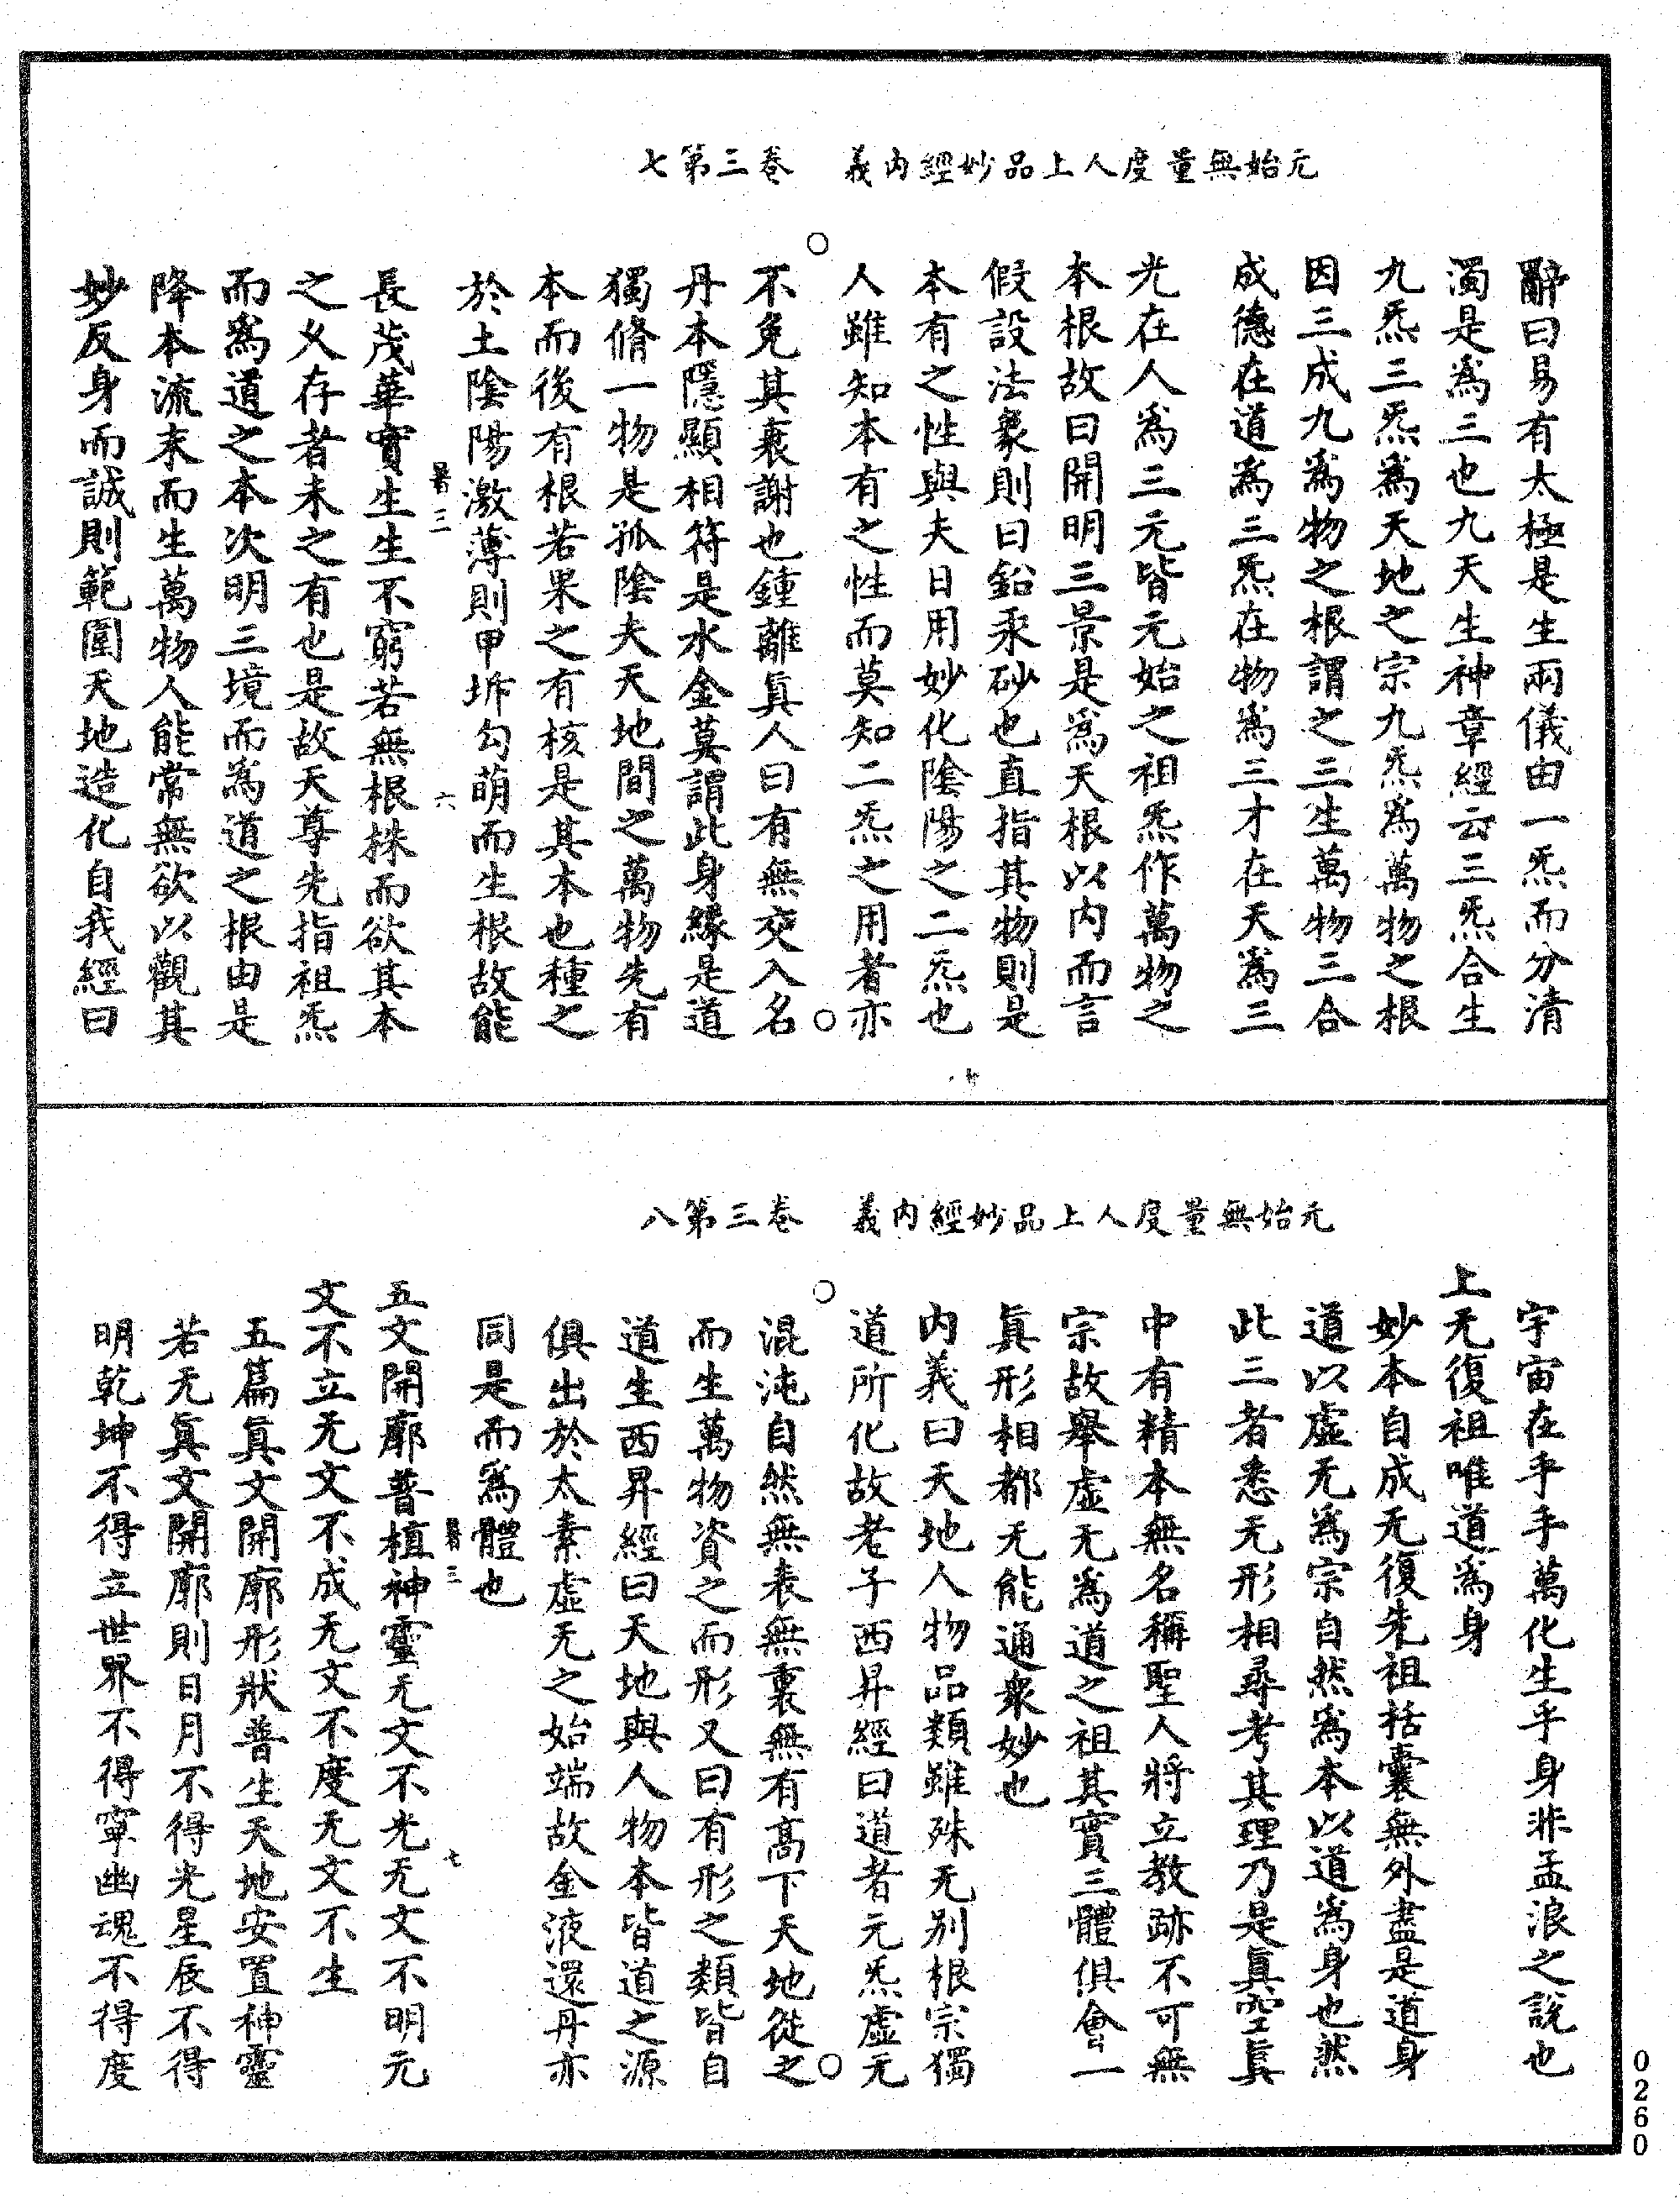 元始無量度人上品妙經內義　卷三第七
辭曰易有太極是生兩儀由一炁而分清
濁是爲三也九天生神章經云三炁合生
九炁三炁爲天地之宗九炁爲萬物之根
因三成九爲物之根謂之三生萬物三合
成德在道爲三炁在物爲三才在天爲三
光在人爲三元皆元始之祖炁作萬物之
本根故曰開明三景是爲天根以内而言
假設法象則曰鉛汞砂也直指其物則是
本有之性與夫日用妙化陰陽之二炁也
人雖知本有之性而莫知二炁之用者亦
不免其衰謝也鍾離眞人曰有無交入名
丹本隱顯相符是水金莫謂此身緣是道
獨脩一物是孤陰夫天地間之萬物先有
本而後有根若果之有核是其本也種之
於土陰陽激薄則甲坼勾萌而生根故能
暑三　六
長茂華實生生不窮若無根株而欲其本
之乂存者未之有也是故天尊先指祖炁
而爲道之本次明三境而爲道之根由是
降本流末而生萬物人能常無欲以觀其
妙反身而誠則範圍天地造化自我經曰
元始無量度人上品妙經內義　卷三第八
宇宙在乎手萬化生乎身非孟浪之說也
上无復祖唯道爲身
妙本自成无復先祖括囊無外盡是道身
道以虛无爲宗自然爲本以道爲身也然
此三者悉无形相尋考其理乃是眞空眞
中有精本無名稱聖人將立教跡不可無
宗故舉虛无爲道之祖其實三體俱會一
眞形相都无能通衆妙也
内義曰天地人物品類雖殊无别根宗獨
道所化故老子西昇經曰道者元炁虛无
混沌自然無表無裏無有高下天地從之
而生萬物資之而形又曰有形之類皆自
道生西昇經曰天地與人物本皆道之源
俱出於太素虛无之始端故金液還丹亦
同是而爲體也
暑三　七
五文開廓普植神靈无文不光无文不明元
文不立无文不成无文不度无文不生
五篇眞文開廓形狀普生天地安置神靈
若无眞文開廓則日月不得光星辰不得
明乾坤不得立世界不得寧幽魂不得度
0260